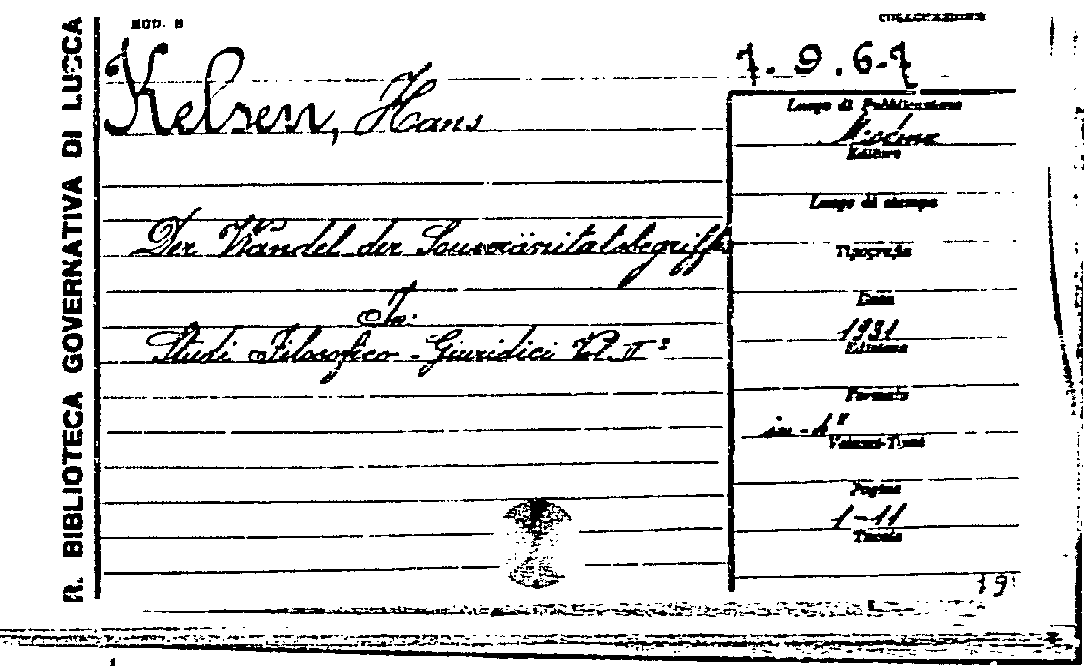 R. BIBLIOTECA GOVERNATIVA DI LUCCA
MOD. B
COLLOCAZIONE
7.9.6-7
Kelsen, Hans
Der Wandel der Souveränitätsbegriffes
In:
Studi Filosofico-Giuridici
Luogo di Pubblicazione
Modena
Editore
Luogo di stampa
Tipografia
Data
1931
Edizione
Formato
in-4°
Volumi-Tomi
Pagine
1-11
Tavole